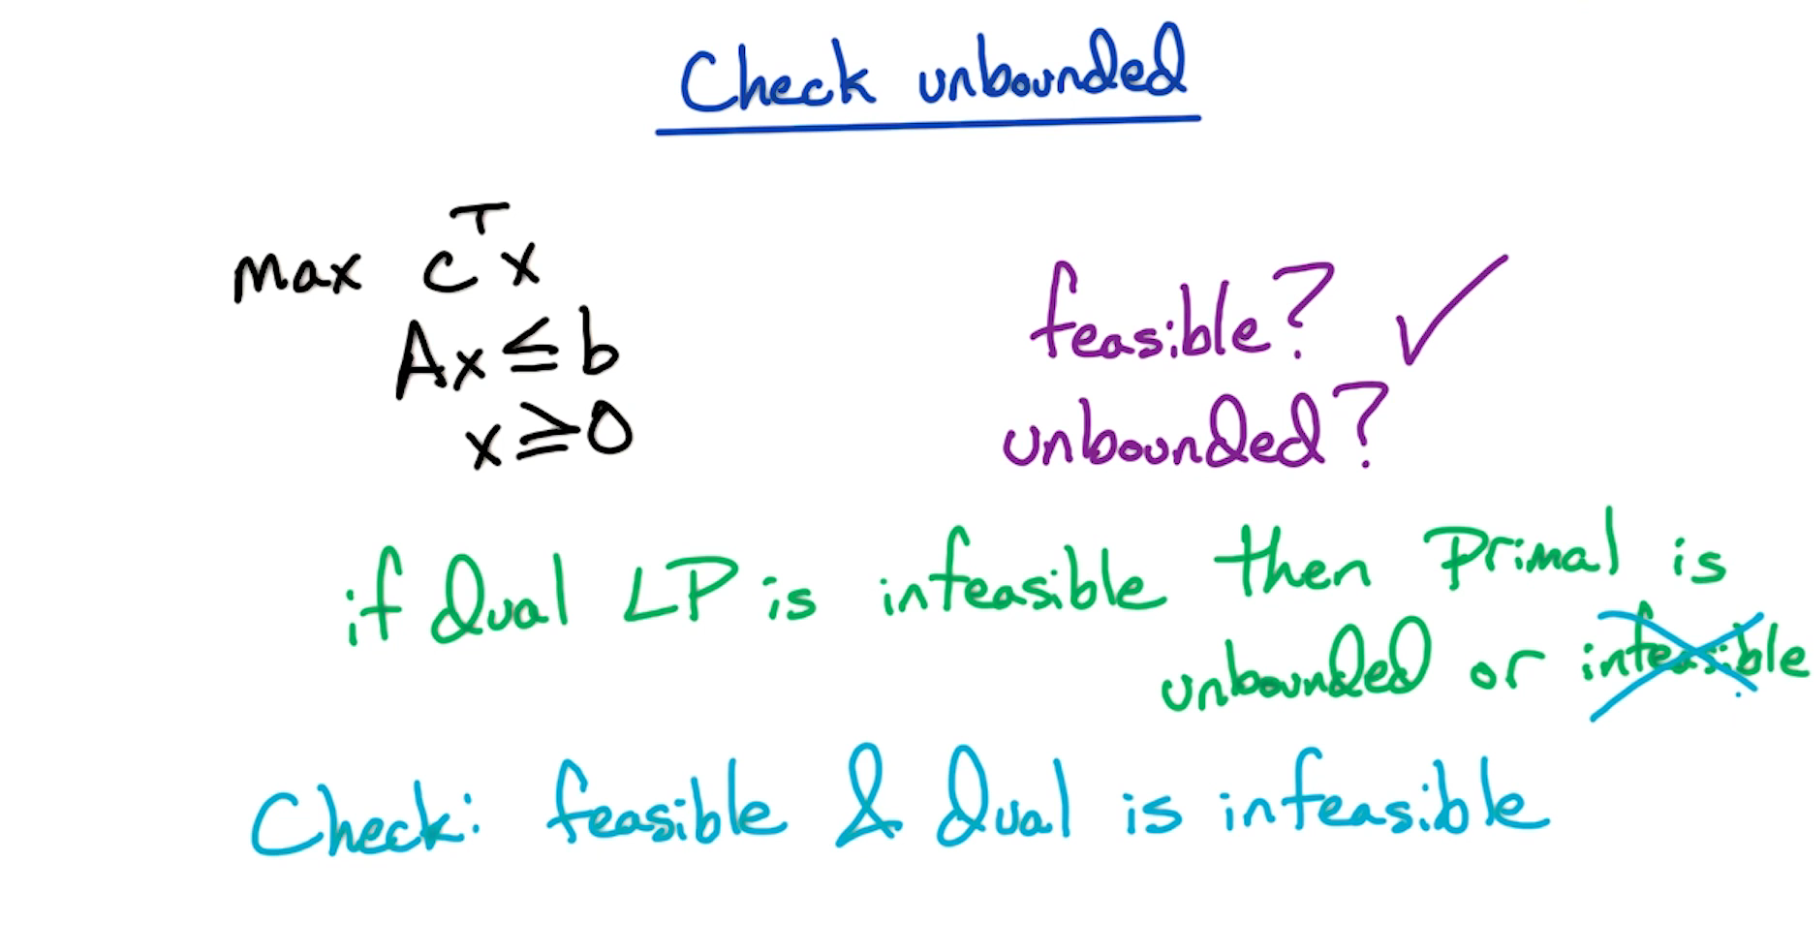 Check unbounded
max cᵀx
Ax ≤ b
x ≥ 0
feasible? ✓
unbounded?
if dual LP is infeasible then Primal is
unbounded or infeasible
Check: feasible & dual is infeasible